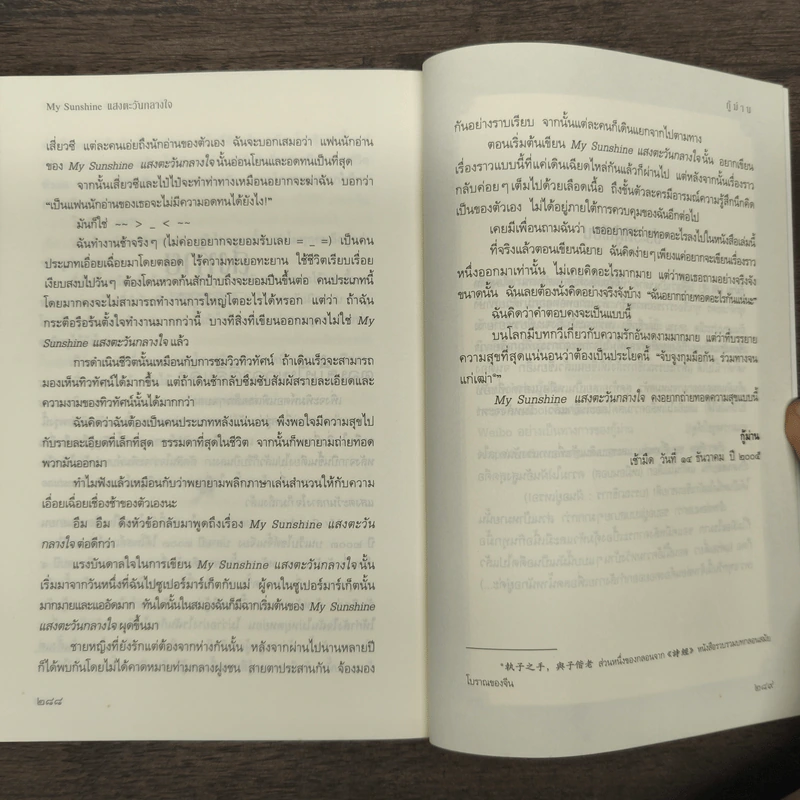 My Sunshine แสงตะวันกลางใจ
เสี่ยวซี แต่ละคนเอ่ยถึงนักอ่านของตัวเอง ฉันจะบอกเสมอว่า แฟนนักอ่าน
ของ My Sunshine แสงตะวันกลางใจ นั้นอ่อนโยนและอดทนเป็นที่สุด
จากนั้นเสี่ยวซีและไป๋ไป๋จะทำท่าทางเหมือนอยากจะฆ่าฉัน บอกว่า
“เป็นแฟนนักอ่านของเธอจะไม่มีความอดทนได้ยังไง!”
มันก็ใช่ ~~ > _ < ~~
ฉันทำงานช้าจริงๆ (ไม่ค่อยอยากจะยอมรับเลย = _ =) เป็นคน
ประเภทเอื่อยเฉื่อยมาโดยตลอด ไร้ความทะเยอทะยาน ใช้ชีวิตเรียบเรื่อย
เงียบสงบไปวันๆ ต้องโดนหวดก้นสักป้าบถึงจะยอมปีนขึ้นต่อ คนประเภทนี้
โดยมากคงจะไม่สามารถทำงานการใหญ่โตอะไรได้หรอก แต่ว่า ถ้าฉัน
กระตือรือร้นตั้งใจทำงานมากกว่านี้ บางทีสิ่งที่เขียนออกมาคงไม่ใช่ My
Sunshine แสงตะวันกลางใจ แล้ว
การดำเนินชีวิตนั้นเหมือนกับการชมวิวทิวทัศน์ ถ้าเดินเร็วจะสามารถ
มองเห็นทิวทัศน์ได้มากขึ้น แต่ถ้าเดินช้ากลับซึมซับสัมผัสรายละเอียดและ
ความงามของทิวทัศน์นั้นได้มากกว่า
ฉันคิดว่าฉันต้องเป็นคนประเภทหลังแน่นอน พึงพอใจมีความสุขไป
กับรายละเอียดที่เล็กที่สุด ธรรมดาที่สุดในชีวิต จากนั้นก็พยายามถ่ายทอด
พวกมันออกมา
ทำไมฟังแล้วเหมือนกับว่าพยายามพลิกภาษาเล่นสำนวนให้กับความ
เอื่อยเฉื่อยเชื่องช้าของตัวเองนะ
อืม อืม ดึงหัวข้อกลับมาพูดถึงเรื่อง My Sunshine แสงตะวัน
กลางใจ ต่อดีกว่า
แรงบันดาลใจในการเขียน My Sunshine แสงตะวันกลางใจ นั้น
เริ่มมาจากวันหนึ่งที่ฉันไปซูเปอร์มาร์เก็ตกับแม่ ผู้คนในซูเปอร์มาร์เก็ตนั้น
มากมายและแออัดมาก ทันใดนั้นในสมองฉันก็มีฉากเริ่มต้นของ My Sunshine
แสงตะวันกลางใจ ผุดขึ้นมา
ชายหญิงที่ยังรักแต่ต้องจากห่างกันนั้น หลังจากผ่านไปนานหลายปี
ก็ได้พบกันโดยไม่ได้คาดหมายท่ามกลางฝูงชน สายตาประสานกัน จ้องมอง
๒๘๘
กู้ม่าน
กันอย่างราบเรียบ จากนั้นแต่ละคนก็เดินแยกจากไปตามทาง
ตอนเริ่มต้นเขียน My Sunshine แสงตะวันกลางใจ นั้น อยากเขียน
เรื่องราวแบบนี้ที่แค่เดินเฉียดไหล่กันแล้วก็ผ่านไป แต่หลังจากนั้นเรื่องราว
กลับค่อยๆ เต็มไปด้วยเลือดเนื้อ ถึงขั้นตัวละครมีอารมณ์ความรู้สึกนึกคิด
เป็นของตัวเอง ไม่ได้อยู่ภายใต้การควบคุมของฉันอีกต่อไป
เคยมีเพื่อนถามฉันว่า เธออยากจะถ่ายทอดอะไรลงไปในหนังสือเล่มนี้
ที่จริงแล้วตอนเขียนนิยาย ฉันคิดง่ายๆ เพียงแค่อยากจะเขียนเรื่องราว
หนึ่งออกมาเท่านั้น ไม่เคยคิดอะไรมากมาย แต่ว่าพอเธอถามอย่างจริงจัง
ขนาดนั้น ฉันเลยต้องนั่งคิดอย่างจริงจังบ้าง “ฉันอยากถ่ายทอดอะไรกันแน่นะ”
ฉันคิดว่าคำตอบคงจะเป็นแบบนี้
บนโลกมีบทกวีเกี่ยวกับความรักอันงดงามมากมาย แต่ว่าที่บรรยาย
ความสุขที่สุดแน่นอนว่าต้องเป็นประโยคนี้ “จับจูงกุมมือกัน ร่วมทางจน
แก่เฒ่า*”
My Sunshine แสงตะวันกลางใจ คงอยากถ่ายทอดความสุขแบบนี้
กู้ม่าน
เช้ามืด วันที่ ๑๔ ธันวาคม ปี ๒๐๐๕
*執子之手，與子偕老 ส่วนหนึ่งของกลอนจาก《詩經》หนังสือรวบรวมบทกลอนสมัย
โบราณของจีน
๒๘๙